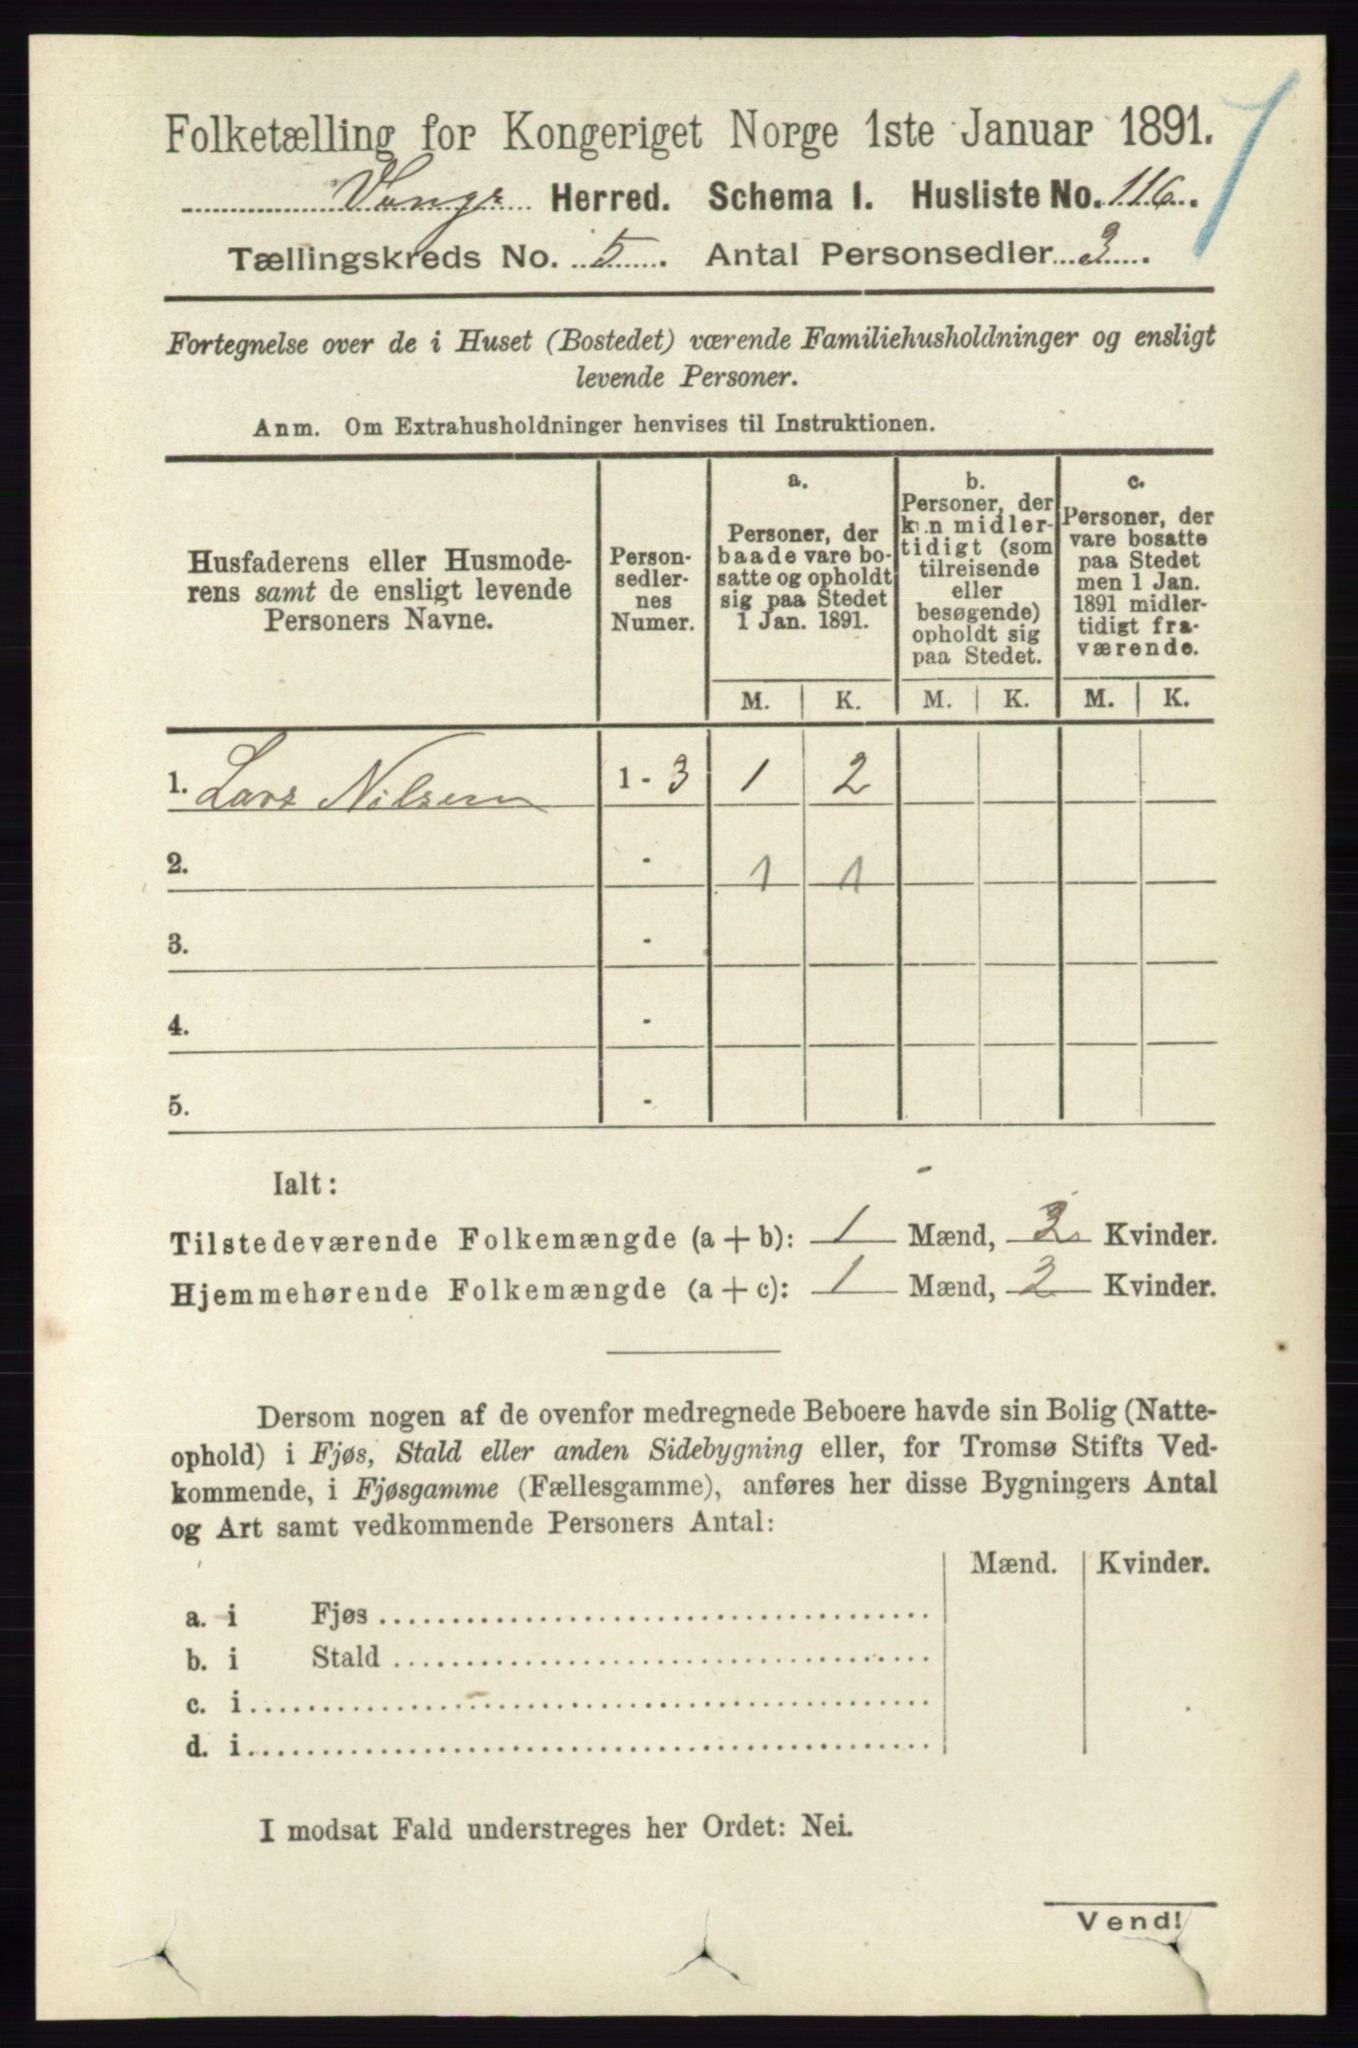 Folketælling for Kongeriget Norge 1ste Januar 1891.
Herred. Schema I. Husliste No. 116.
Tællingskreds No. 5. Antal Personsedler 3.
Fortegnelse over de i Huset (Bostedet) værende Familiehusholdninger og ensligt
levende Personer.
Anm. Om Extrahusholdninger henvises til Instruktionen.
Husfaderens eller Husmode-
rens samt de ensligt levende
Personers Navne.
Person-
sedler-
nes
Numer.
a.
Personer, der
baade vare bo-
satte og opholdt
sig paa Stedet
1 Jan. 1891.
b.
Personer, der
kun midler-
tidigt (som
tilreisende
eller
besøgende)
opholdt sig
paa Stedet.
c.
Personer, der
vare bosatte
paa Stedet
men 1 Jan.
1891 midler-
tidigt fra-
værende.
M. K. M. K. M. K.
1. Lars Nilsen 1 - 3 1 2
2. - 1 1
3. -
4. -
5. -
Ialt:
Tilstedeværende Folkemængde (a + b): 1 Mænd, 2 Kvinder.
Hjemmehørende Folkemængde (a + c): 1 Mænd, 2 Kvinder.
Dersom nogen af de ovenfor medregnede Beboere havde sin Bolig (Natte-
ophold) i Fjøs, Stald eller anden Sidebygning eller, for Tromsø Stifts Ved-
kommende, i Fjøsgamme (Fællesgamme), anføres her disse Bygningers Antal
og Art samt vedkommende Personers Antal:
Mænd. Kvinder.
a. i Fjøs
b. i Stald
c. i
d. i
I modsat Fald understreges her Ordet: Nei.
Vend!